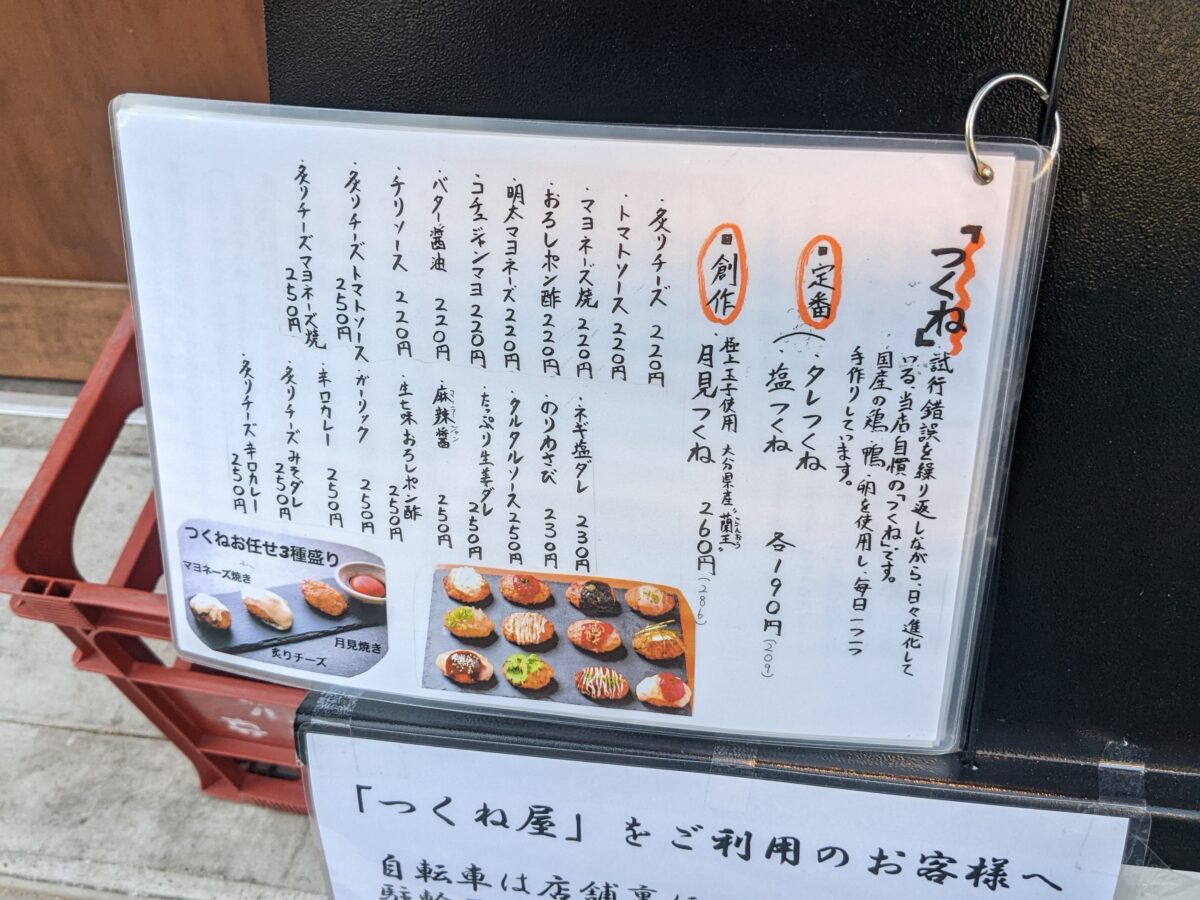 「つくね」
試行錯誤を繰り返しながら、日々進化して
いる、当店自慣の「つくね」です。
国産の鶏・鴨・卵を使用し、毎日一つ一つ
手作りしています。
■定番
・タレつくね
・塩つくね 各190円(209)
■創作
極上玉子使用 大分県産"蘭王"
らんおう
・月見つくね 260円(286)
・炙りチーズ 220円
・トマトソース 220円
・マヨネーズ焼 220円
・おろしポン酢 220円
・明太マヨネーズ 220円
・コチュジャンマヨ 220円
・バター醤油 220円
・チリソース 220円
・炙りチーズトマトソース 250円
・炙りチーズマヨネーズ焼 250円
・ネギ塩ダレ 230円
・のりわさび 230円
・タルタルソース 250円
・たっぷり生姜ダレ 250円
・麻辣醤 250円
マーラージャン
・生七味おろしポン酢 250円
・ガーリック 250円
・辛口カレー 250円
・炙りチーズみそダレ 250円
・炙りチーズ辛口カレー 250円
つくねお任せ3種盛り
マヨネーズ焼き
月見焼き
炙りチーズ
「つくね屋」をご利用のお客様へ
自転車は店舗裏
駐輪